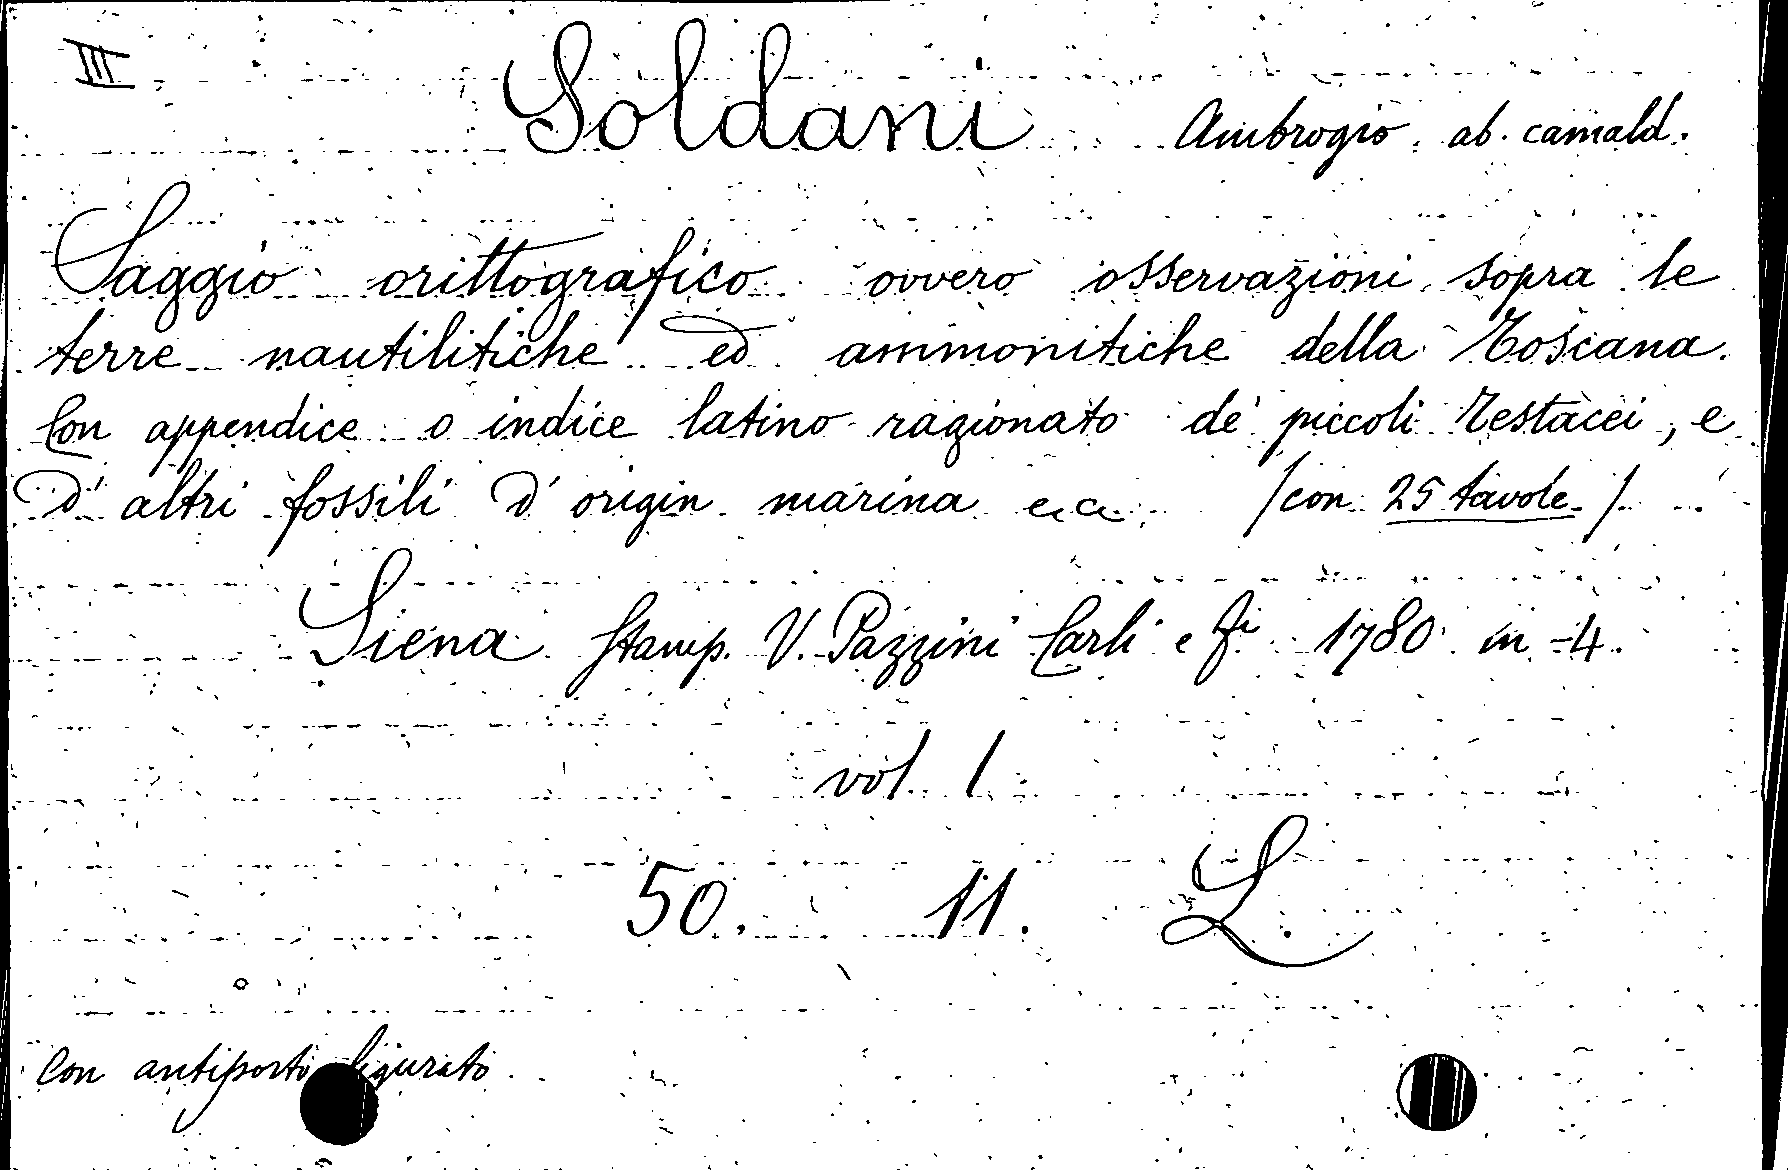 III
Soldani Ambrogio ab. camald.
Saggio orittografico ovvero osservazioni sopra le
terre nautilitiche ed ammonitiche della Toscana.
Con appendice o indice latino ragionato de' piccoli Testacei, e
d' altri fossili d' origin marina /con 25 tavole/
Siena Stamp. V. Pazzini Carli e Fi 1780 in-4.
vol. 1
50. 11. L.
Con antiporto figurato